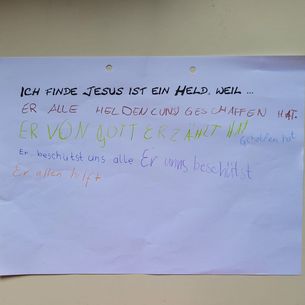 ICH FINDE JESUS IST EIN HELD, WEIL ...
ER ALLE HELDEN (UNS) GESCHAFFEN HAT.
ER VON GOTT ERZÄHLT HAT
Geholfen hat
Er beschützt uns alle Er unns beschützt
Er allen hilft